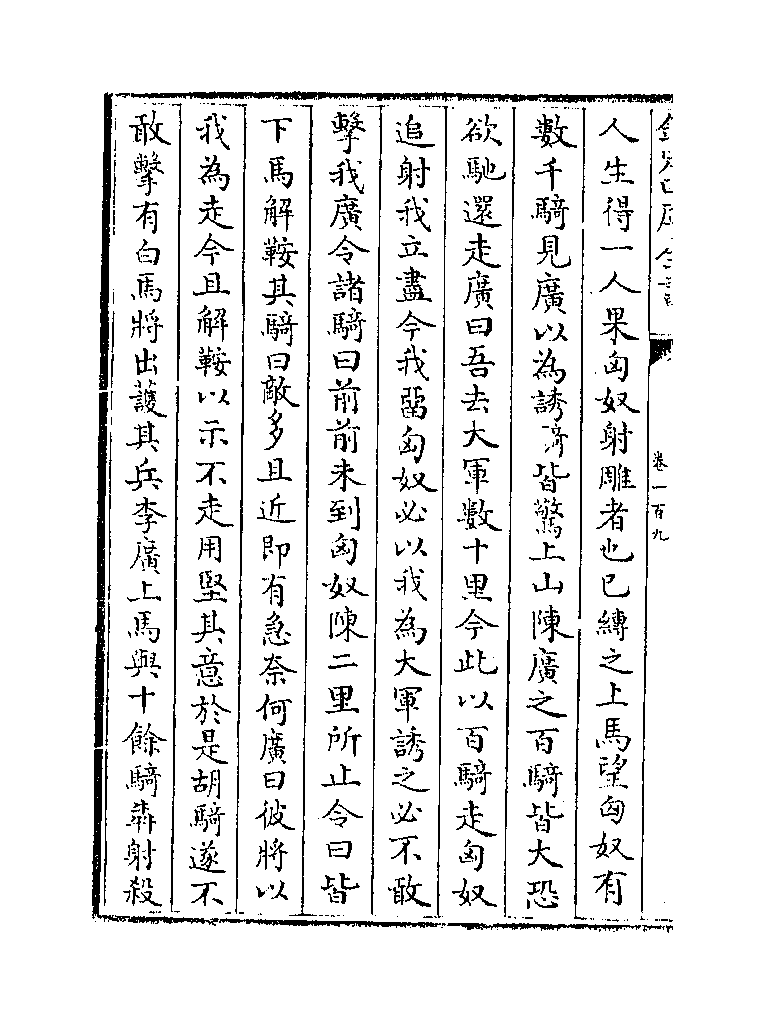 卷一百九
人生得一人果匈奴射雕者也已縛之上馬望匈奴有
數千騎見廣以為誘騎皆驚上山陳廣之百騎皆大恐
欲馳還走廣曰吾去大軍數十里今此以百騎走匈奴
追射我立盡今我留匈奴必以我為大軍誘之必不敢
擊我廣令諸騎曰前前未到匈奴陳二里所止令曰皆
下馬解鞍其騎曰敵多且近即有急奈何廣曰彼將以
我為走今且解鞍以示不走用堅其意於是胡騎遂不
敢擊有白馬將出護其兵李廣上馬與十餘騎犇射殺